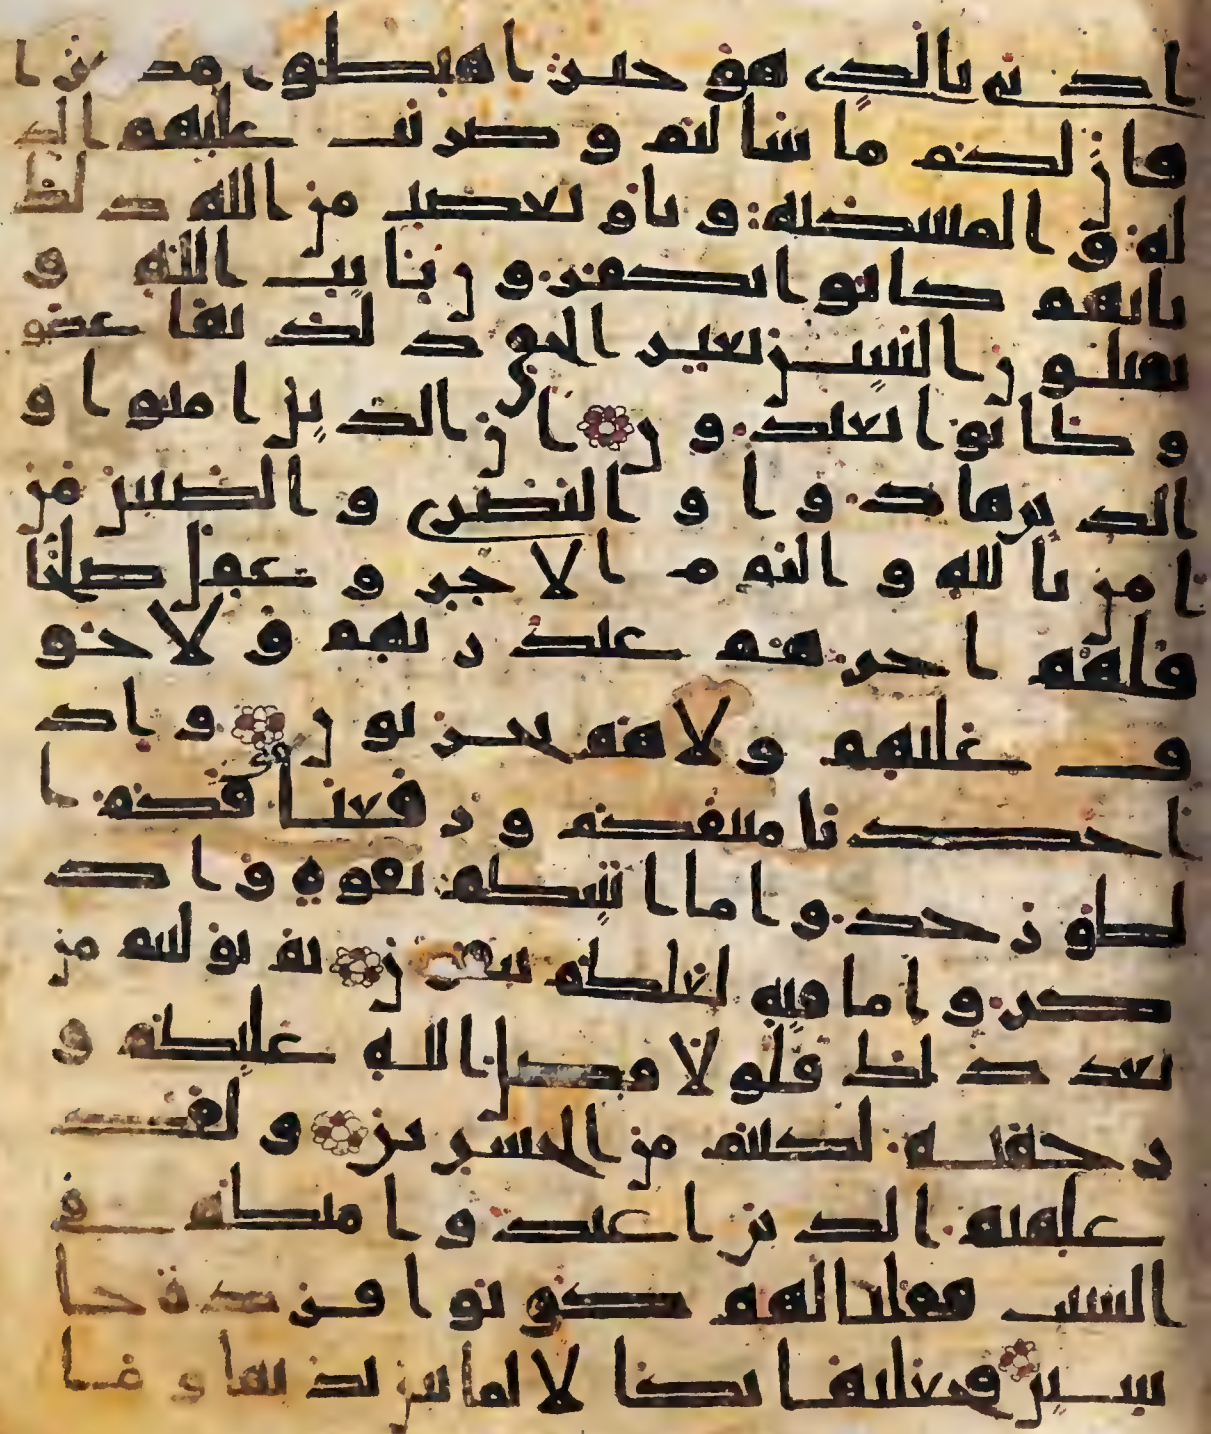 ادنى بالذى هو خير اهبطوا مصرا
فان لكم ما سالتم و ضربت عليهم الذ
لة و المسكنة و باو بغضب من الله ذلك
بانهم كانوا يكفرون بايت الله و
يقتلون النبين بغير الحق ذلك بما عصو
و كانوا يعتدون ان الذين امنوا و
الذين هادوا و النصرى و الصبين من
امن بالله و اليوم الاخر و عمل صلحا
فلهم اجرهم عند ربهم و لا خو
ف عليهم و لا هم يحزنون و اذ
اخذنا ميثقكم و رفعنا فوقكم ا
لطور خذوا ما اتينكم بقوة و اذ
كروا ما فيه لعلكم تتقون ثم توليتم من
بعد ذلك فلولا فضل الله عليكم و
رحمته لكنتم من الخسرين و لقد
علمتم الذين اعتدوا منكم في
السبت فقلنا لهم كونوا قردة خا
سين فجعلنها نكلا لما بين يديها و ما